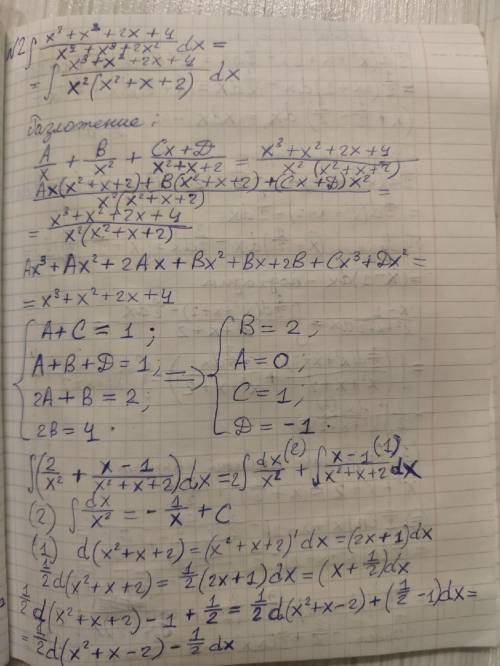 №2 ∫ (x³+x²+2x+4)/(x⁴+x³+2x²) dx =
= ∫ (x³+x²+2x+4)/(x²(x²+x+2)) dx
Разложение:
A/x + B/x² + (Cx+D)/(x²+x+2) = (x³+x²+2x+4)/(x²(x²+x+2))
(Ax(x²+x+2)+B(x²+x+2)+(Cx+D)x²)/(x²(x²+x+2)) =
= (x³+x²+2x+4)/(x²(x²+x+2))
Ax³+Ax²+2Ax+Bx²+Bx+2B+Cx³+Dx² =
= x³+x²+2x+4
{ A+C=1; A+B+D=1; 2A+B=2; 2B=4. => { B=2; A=0; C=1; D=-1.
∫(2/x² + (x-1)/(x²+x+2))dx = 2∫dx/x² (2) + ∫(x-1)/(x²+x+2) (1) dx
(2) ∫dx/x² = -1/x + C
(1) d(x²+x+2) = (x²+x+2)'dx = (2x+1)dx
1/2 d(x²+x+2) = 1/2(2x+1)dx = (x+1/2)dx
1/2 d(x²+x+2) - 1 + 1/2 = 1/2 d(x²+x-2) + (1/2 - 1)dx =
= 1/2 d(x²+x-2) - 1/2 dx